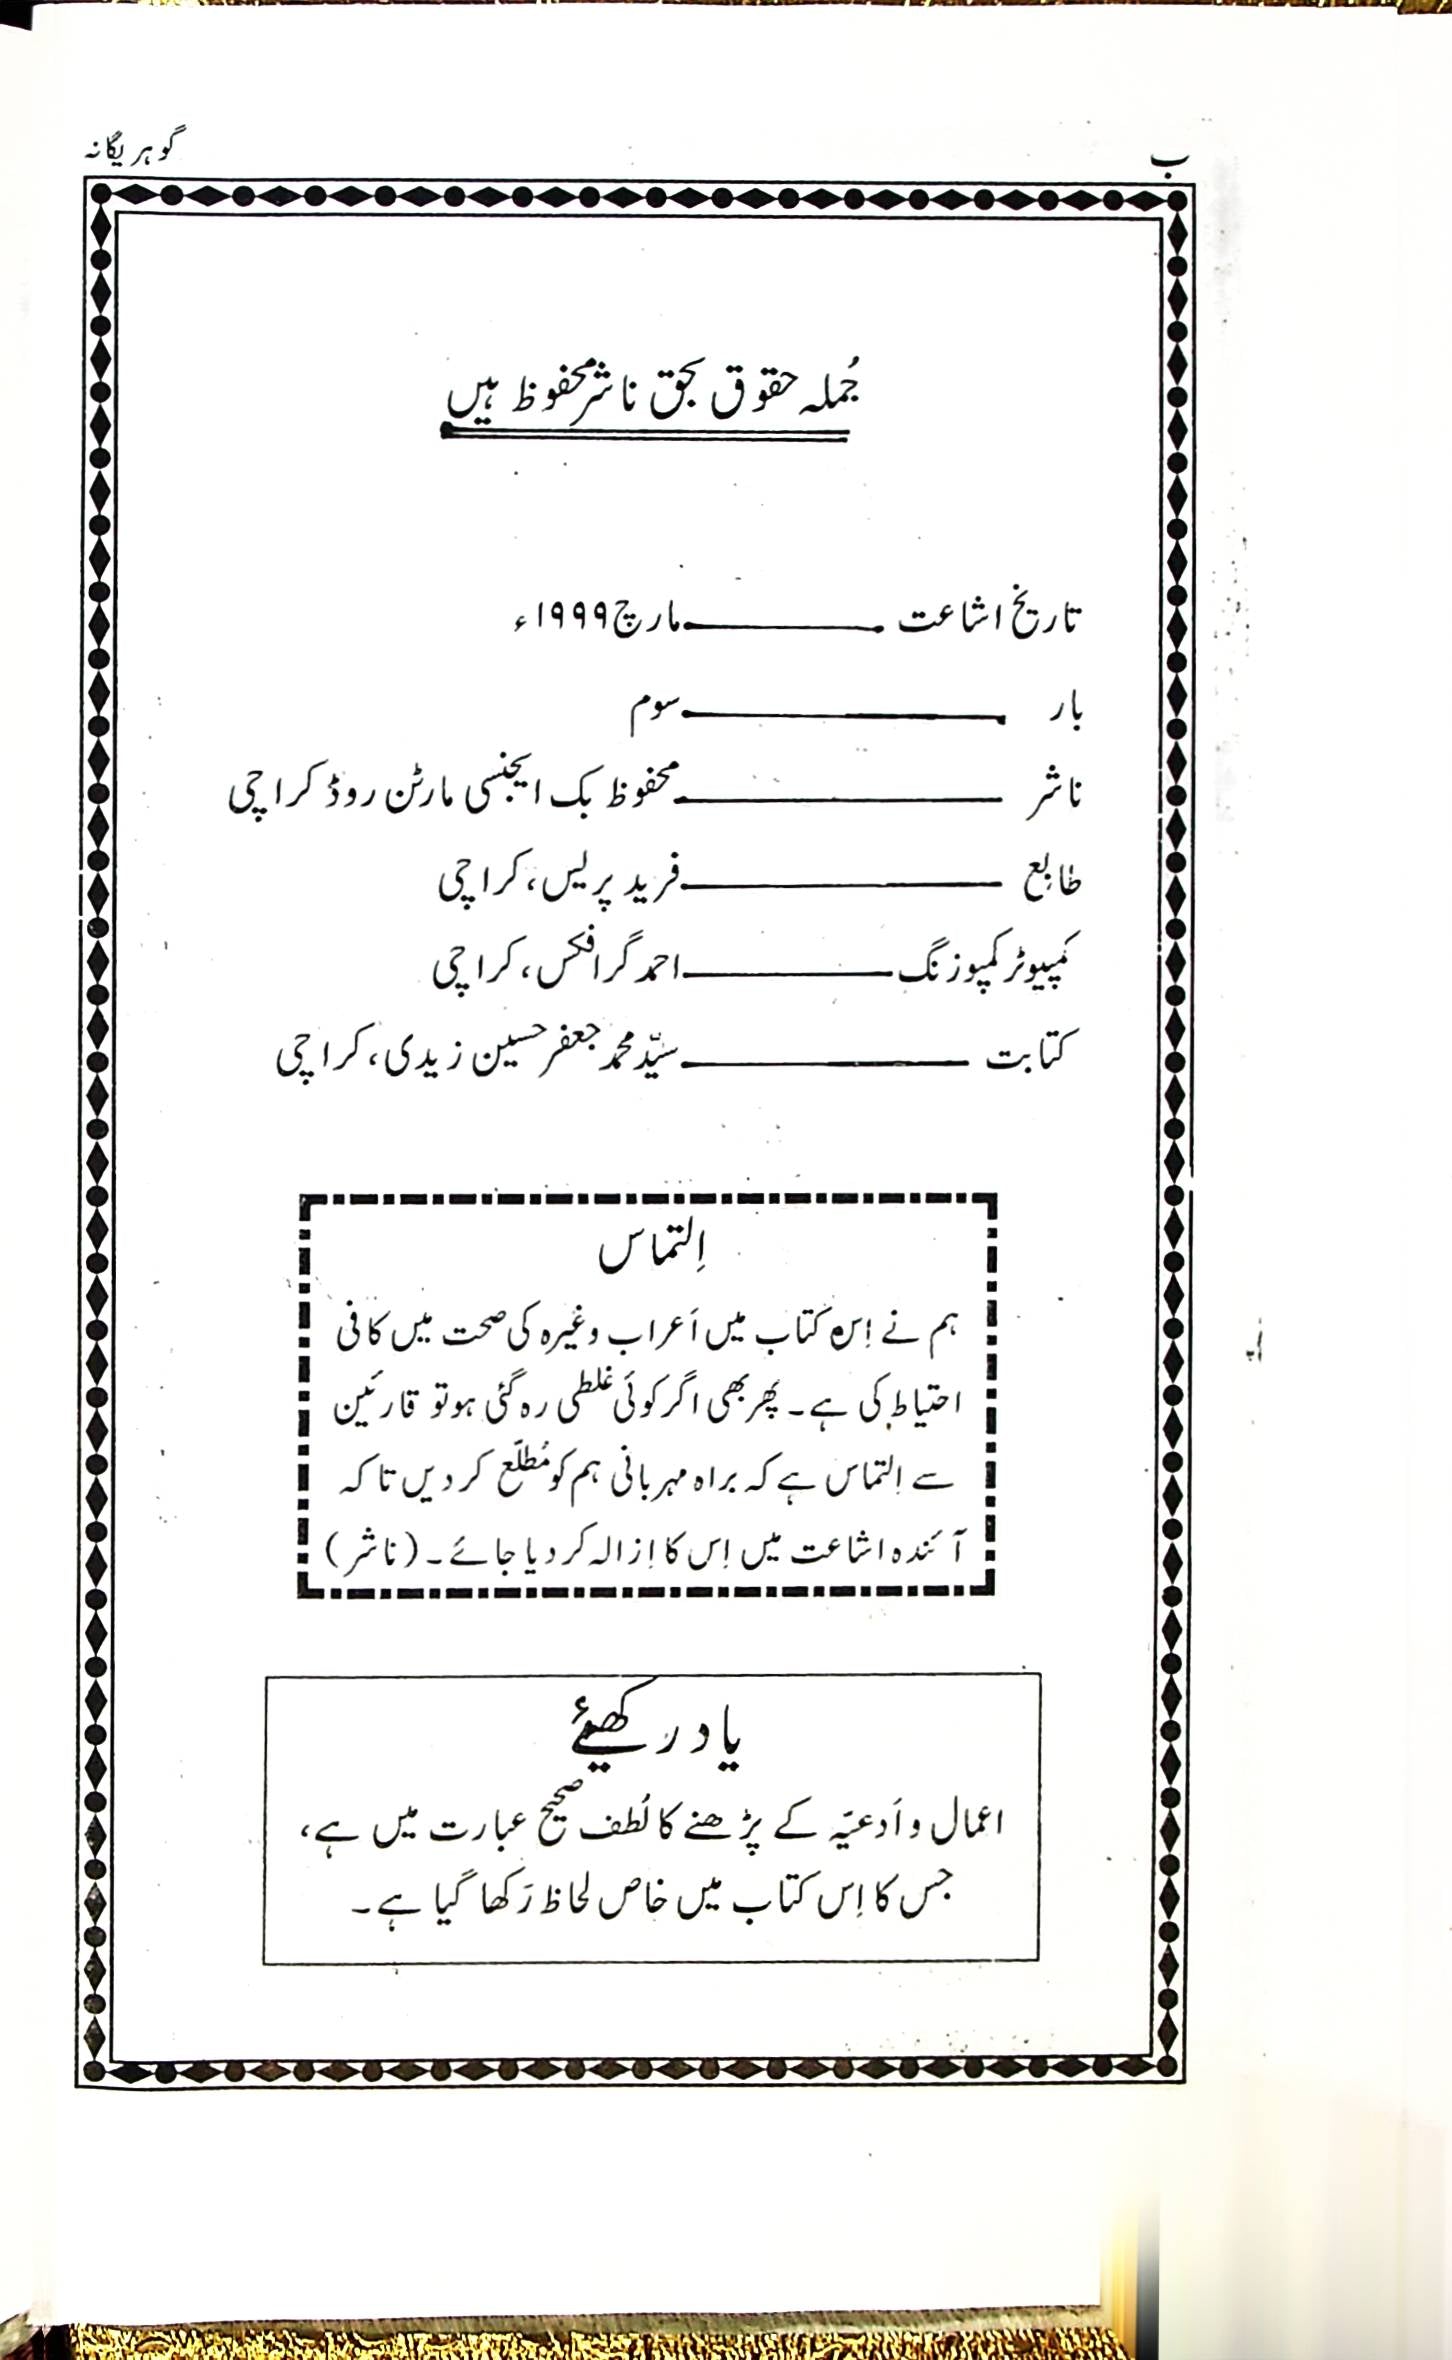 ب
گوہر یگانہ
جُملہ حقوق بحق ناشر محفوظ ہیں
تاریخ اشاعت ــــــــ مارچ ۱۹۹۹ء
بار ــــــــ سوم
ناشر ــــــــ محفوظ بک ایجنسی مارٹن روڈ کراچی
طابع ــــــــ فرید پریس، کراچی
کمپیوٹر کمپوزنگ ــــــــ احمد گرافکس، کراچی
کتابت ــــــــ سیّد محمد جعفر حسین زیدی، کراچی
اِلتماس
ہم نے اِس کتاب میں اَعراب وغیرہ کی صحت میں کافی
احتیاط کی ہے۔ پھر بھی اگر کوئی غلطی رہ گئی ہو تو قارئین
سے اِلتماس ہے کہ براہ مہربانی ہم کو مُطلّع کر دیں تاکہ
آئندہ اشاعت میں اِس کا اِزالہ کر دیا جائے۔ (ناشر)
یاد رکھیئے
اعمال و اَدعیّہ کے پڑھنے کا لُطف صحیح عبارت میں ہے،
جس کا اِس کتاب میں خاص لحاظ رَکھا گیا ہے۔